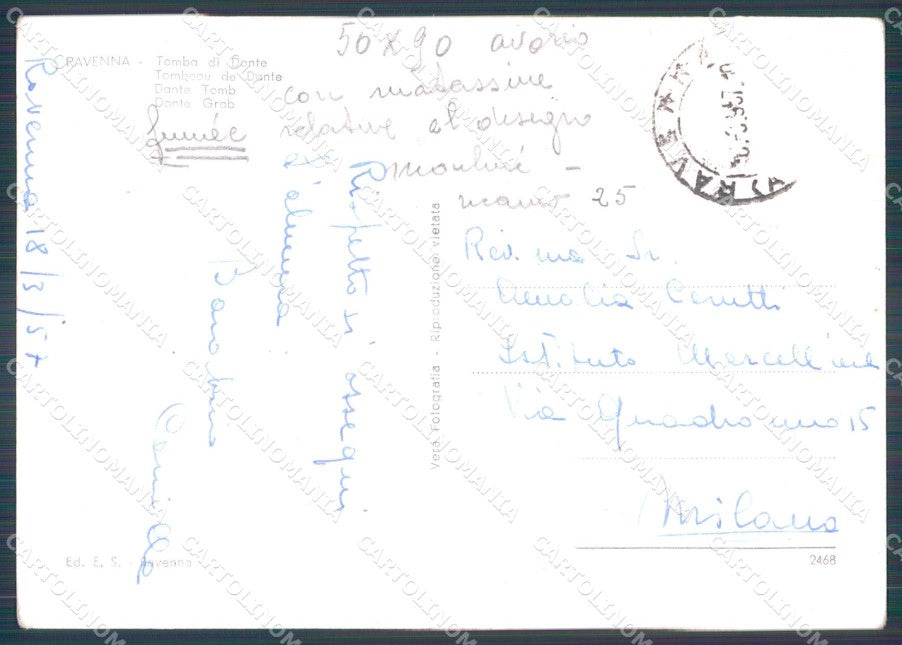 RAVENNA - Tomba di Dante
Tombeau de Dante
Dante Tomb
Dante Grab
50 x 90 avorio
con matassine
relative al disegno
fumée
25
Ravenna 18/3/57
Rispettosi ossequi
d'alunna
Camilla
Vera Fotografia - Riproduzione vietata
Rev.ma Sr.
Amalia Cerutti
Istituto Marcelline
Via Quadronno 15
Milano
Ed. E. S. - Ravenna
2468
CARTOLINOMANIA